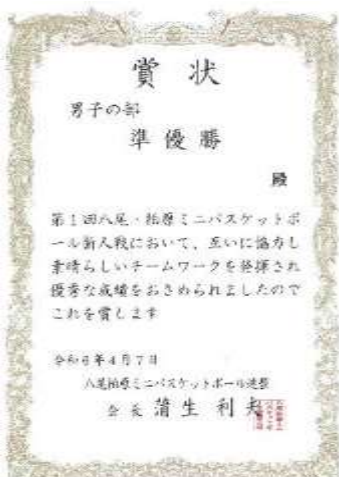 賞状
男子の部
準優勝
殿
第1回八尾・柏原ミニバスケットボ
ール新人戦において、互いに協力し
素晴らしいチームワークを発揮され
優秀な成績をおさめられましたので
これを賞します
令和6年4月7日
八尾柏原ミニバスケットボール連盟
会長 蒲生利夫